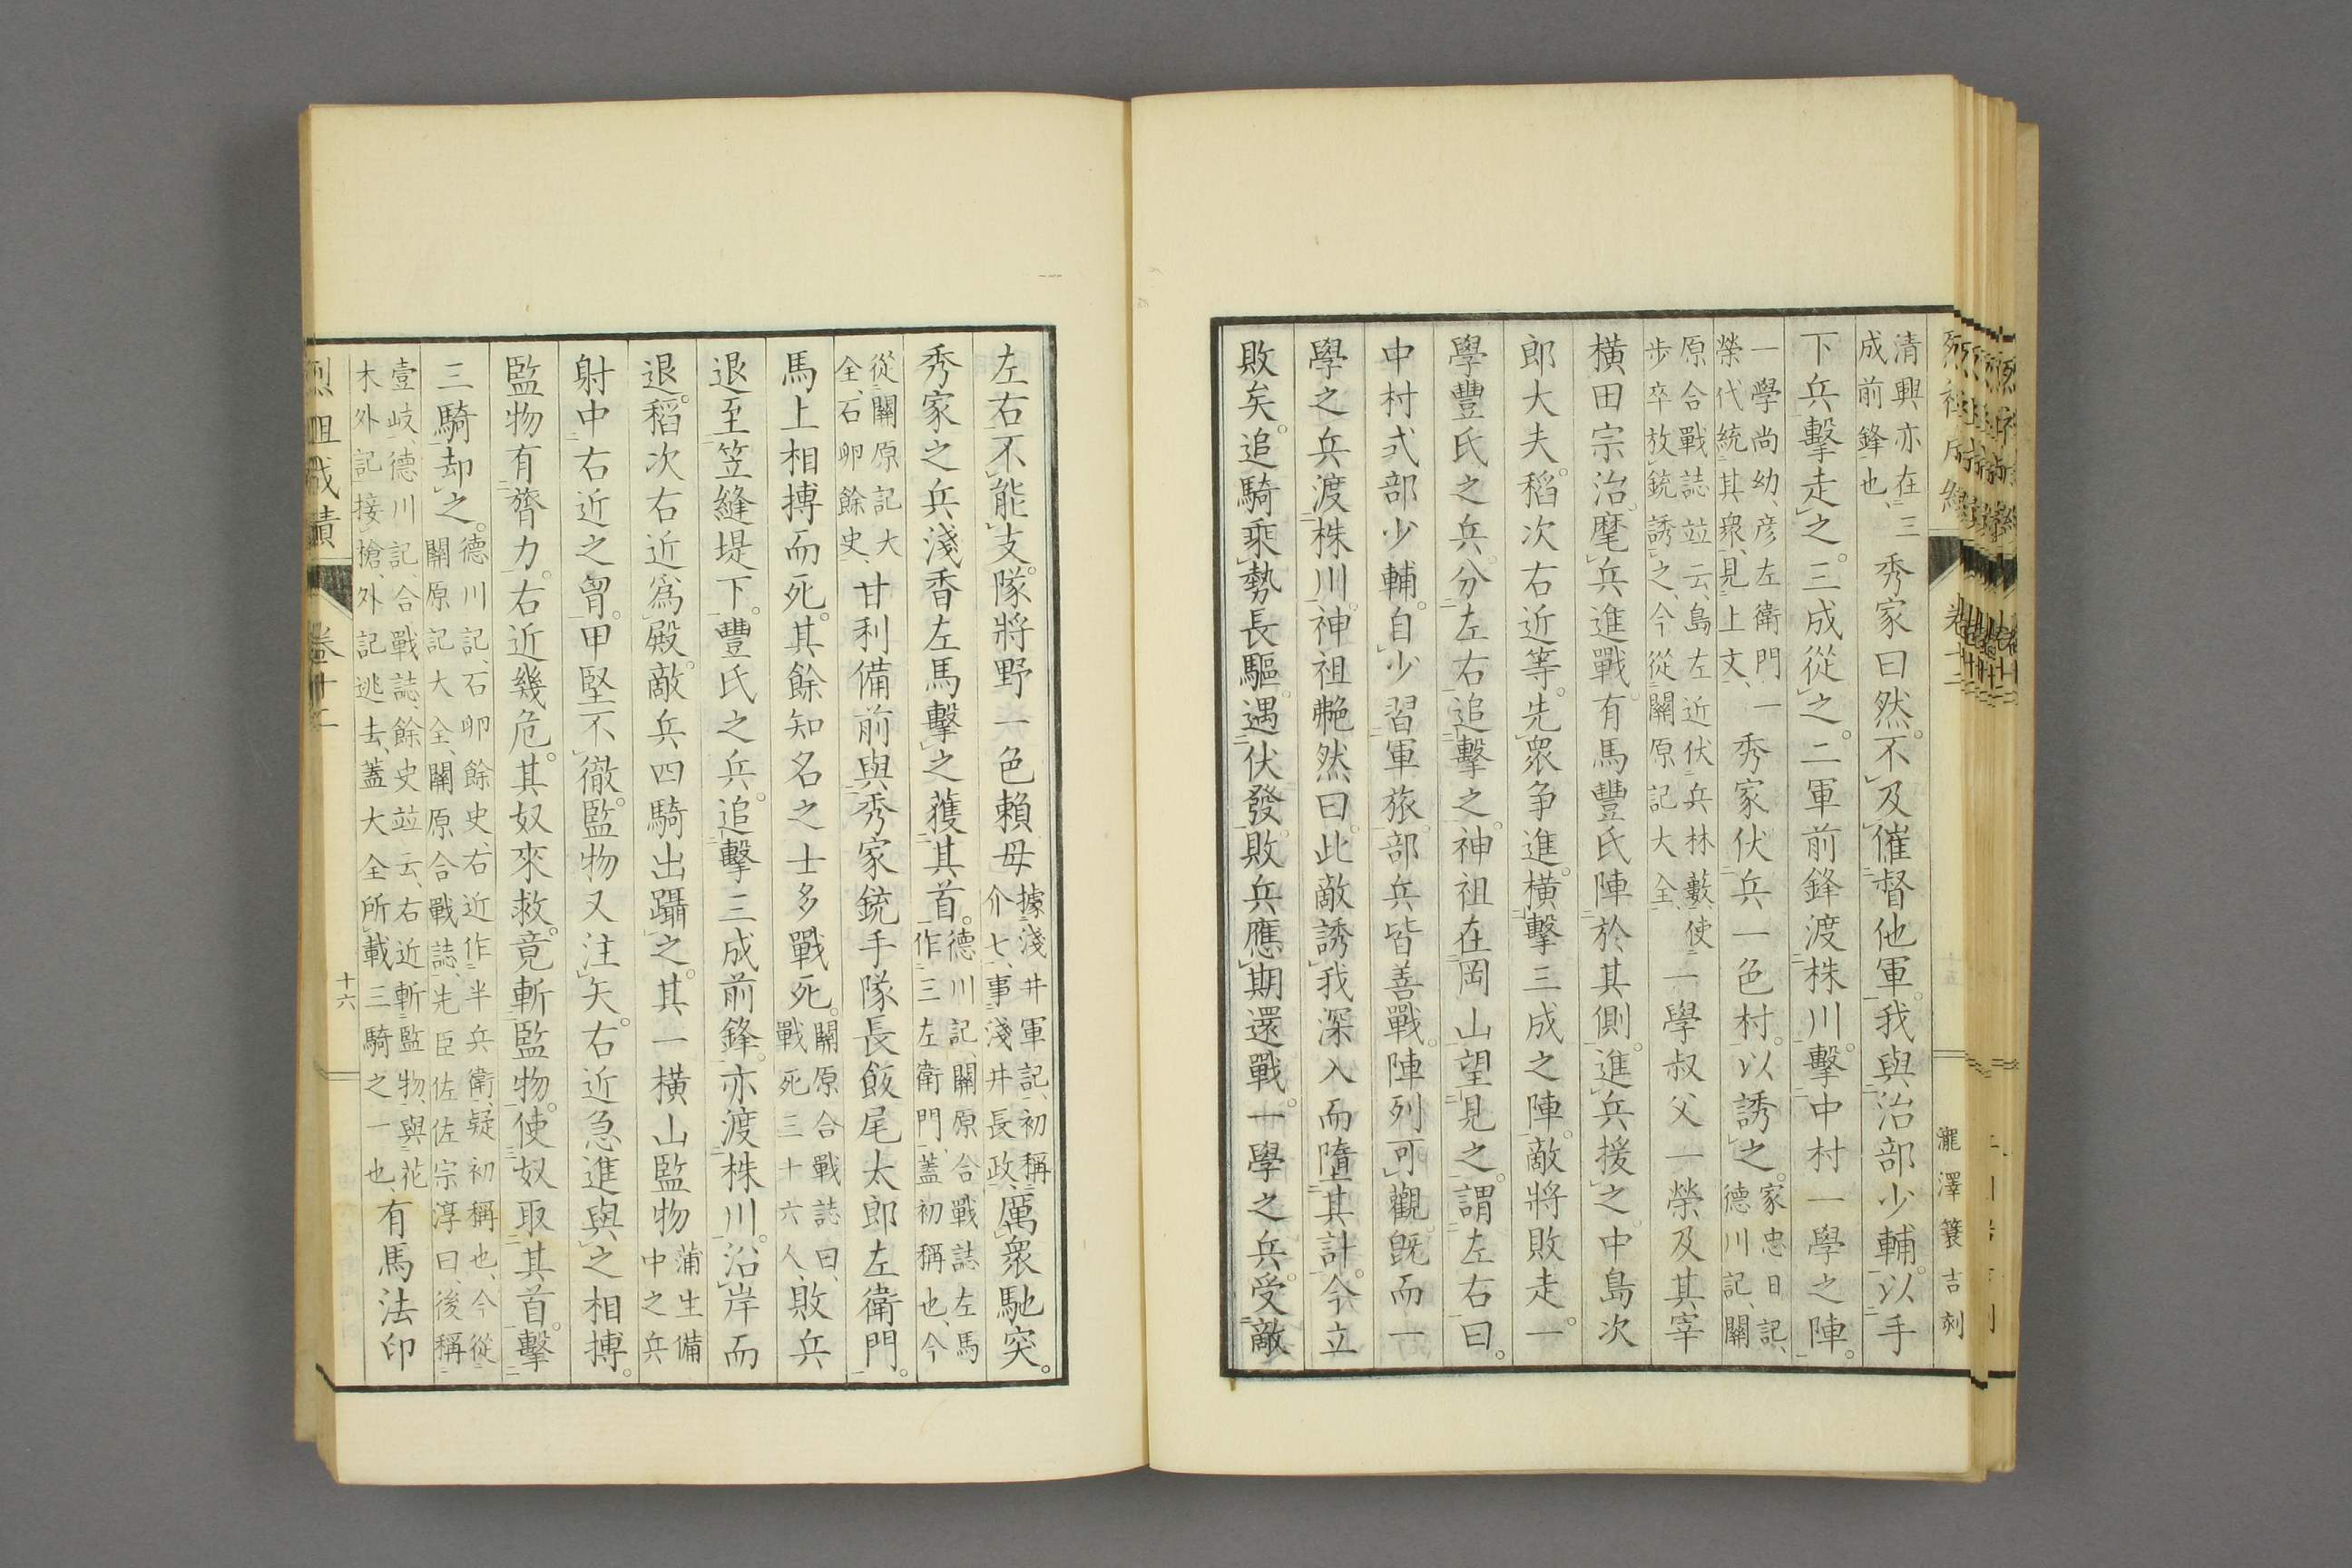 清興亦在三
成前鋒也、
秀家曰然。不及催督他軍。我與治部少輔。以手
下兵擊走之。三成從之。二軍前鋒渡株川。擊中村一學之陣。
一學尚幼、彦左衛門一
榮代統其衆、見上文、
秀家伏兵一色村。以誘之。
家忠日記、
德川記、關
原合戰誌竝云、島左近伏兵林藪、使
步卒放銃誘之、今從關原記大全、
一學叔父一榮及其宰
橫田宗治。麾兵進戰。有馬豐氏陣於其側。進兵援之。中島次
郎大夫。稻次右近等。先衆争進。橫擊三成之陣。敵將敗走。一
學豐氏之兵。分左右追擊之。神祖在岡山望見之。謂左右曰。
中村式部少輔。自少習軍旅。部兵皆善戰。陣列可觀。既而一
學之兵渡株川。神祖艴然曰。此敵誘我深入而墮其計。今立
敗矣。追騎乘勢長驅。遇伏發。敗兵應期還戰。一學之兵。受敵
瀧澤簑吉刻
左右不能支。隊將野一色賴母
據淺井軍記、初稱
介七、事淺井長政、
厲衆馳突。
秀家之兵淺香左馬擊之。獲其首。
德川記、關原合戰誌左馬
作三左衛門、蓋初稱也、今
從關原記大
全、石卵餘史、
甘利備前與秀家銃手隊長飯尾太郎左衛門。
馬上相搏而死。其餘知名之士多戰死。
關原合戰誌曰、
戰死三十六人、
敗兵
退至笠縫堤下。豐氏之兵。追擊三成前鋒。亦渡株川。沿岸而
退。稻次右近爲殿。敵兵四騎出躡之。其一橫山監物
蒲生備
中之兵
射中右近之冑。甲堅不徹。監物又注矢。右近急進與之相搏。
監物有膂力。右近幾危。其奴來救。竟斬監物。使奴取其首。擊
三騎却之。
德川記、石卵餘史、右近作半兵衛、疑初稱也、今從
關原記大全、關原合戰誌、先臣佐佐宗淳曰、後稱
壹岐、德川記、合戰誌、餘史竝云、右近斬監物、與花
木外記接槍、外記逃去、蓋大全所載三騎之一也、
有馬法印
烈祖成績
卷十二
十六